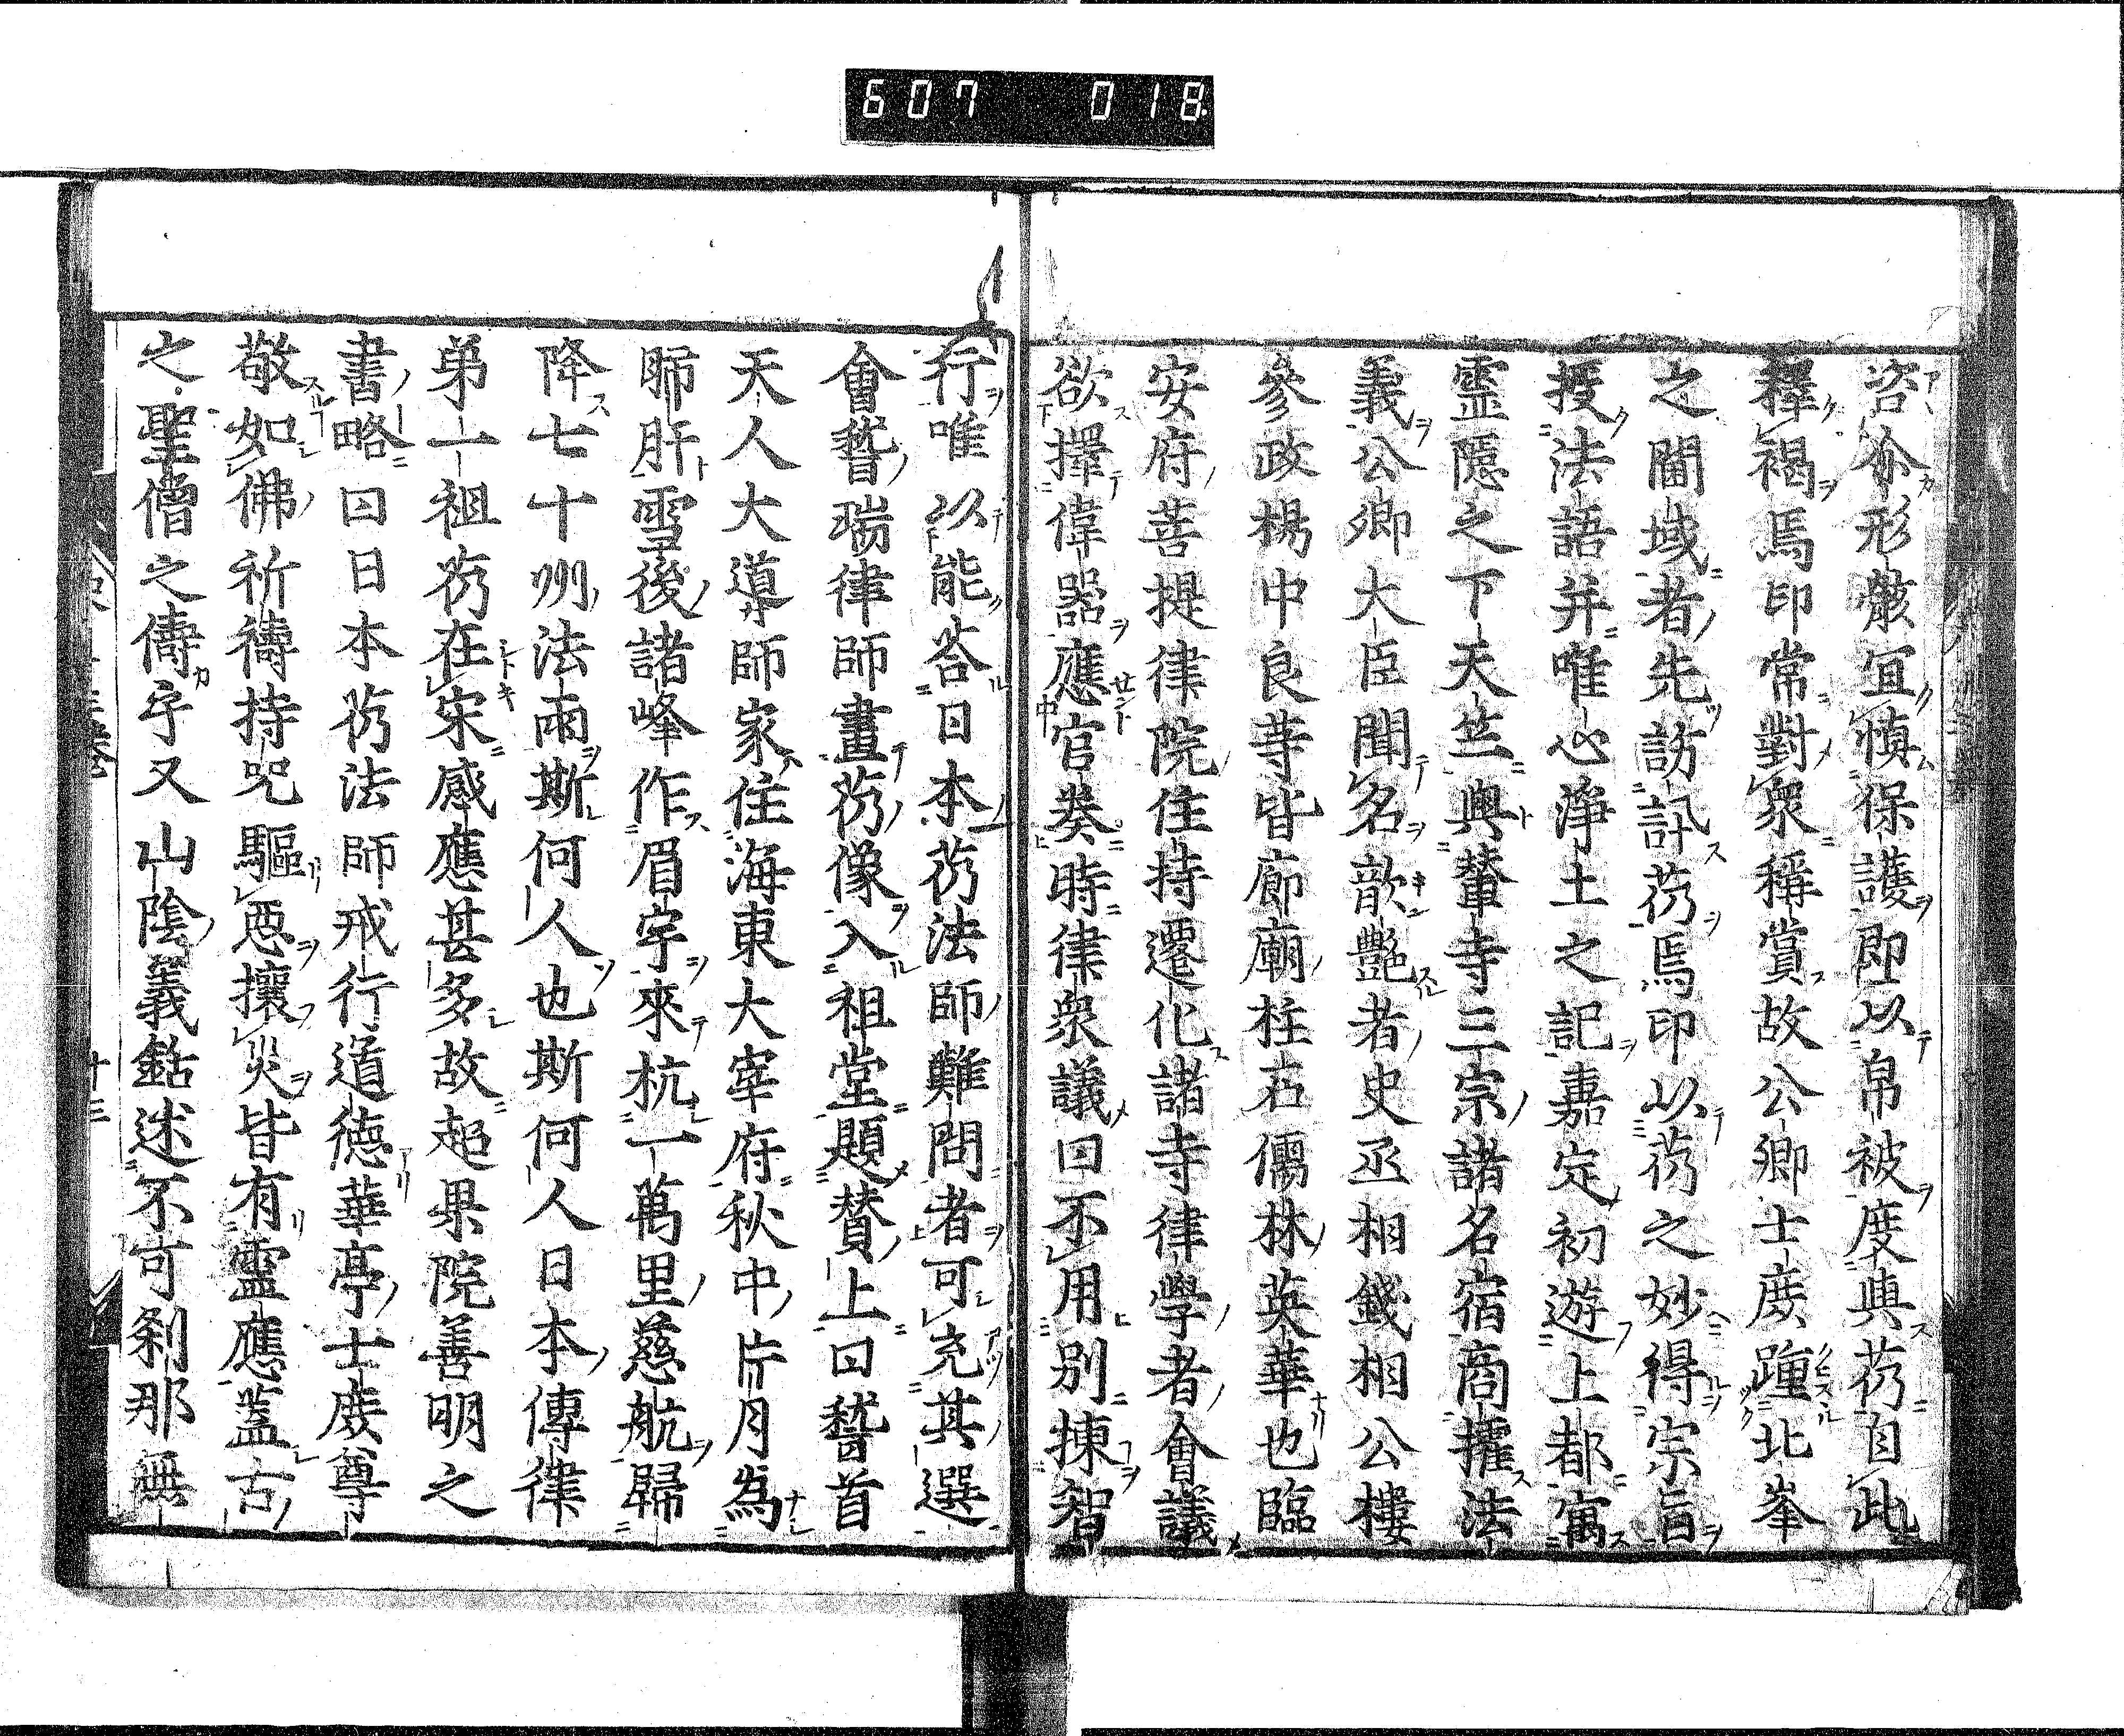 607 018
咨分形骸宜慎保護即以帛被度與芿自此
釋褐焉印常對衆稱賞故公卿士庶踵北峯
之閫域者先訪訊芿焉印以芿之妙得宗旨
授法語并唯心淨土之記嘉定初遊上都寓
霊隱之下天竺與輦寺三宗諸名宿商搉法
義公卿大臣聞名歆艷者史丞相錢相公樓
參政楊中良寺皆廊廟柱石儒林英華也臨
安府菩提律院住持遷化諸寺律學者會議
欲擇偉器應官奏時律衆議曰不用別揀智
行唯以能荅日本芿法師難問者可充其選
會嵆瑞律師畫芿像入祖堂題賛上曰嵆首
天人大導師家住海東大宰府秋中片月為
肺肝雪後諸峰作眉宇來杭一萬里慈航歸
降七十州法雨斯何人也斯何人日本傳律
弟一祖芿在宋感應甚多故超果院善明之
書略曰日本芿法師戒行道德華亭士庶尊
敬如佛祈禱持咒驅惡攘災皆有靈應蓋古
之聖僧之儔乎又山陰義銛述不可刹那無
十三